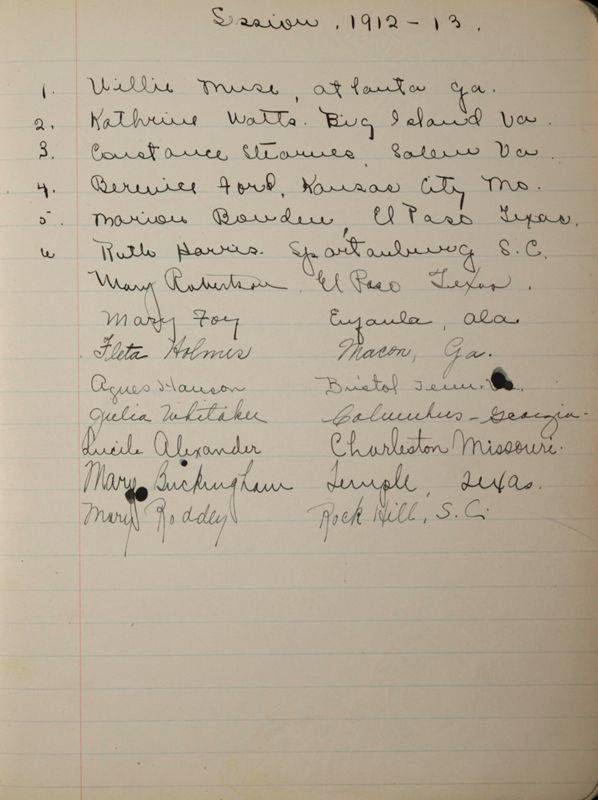 Session, 1912-13.
1. Willie Muse, Atlanta Ga.
2. Kathrine Watts. Big Island Va.
3. Constance Stearnes, Salem Va.
4. Berenice Ford, Kansas City, Mo.
5. Marion Bowden, El Paso Texas.
6 Ruth Harris. Spartanburg S.C.
Mary Robertson El Paso Texas.
Mary Foy Eufaula, Ala
Fleta Holmes Macon, Ga.
Agnes Hanson Bristol Tenn.
Julia Whitaker Columbus-Georgia-
Lucile Alexander Charleston Missouri.
Mary Buckingham Temple, Texas.
Mary Roddey Rock Hill, S.C.